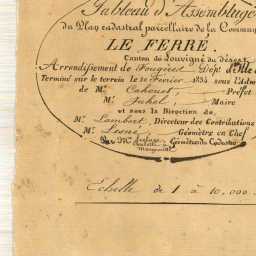 Tableau d'Assemblage
du Plan cadastral parcellaire de la Commune
LE FERRÉ.
Canton de Louvigné du désert
Arrondissement de Fougères Dépt d'Ille
Terminé sur le terrein le Février 1834 sous l'Adm
de Mr Cahouet, Préfet
Mr Juhel, Maire
et sous la Direction de
Mr Lambert, Directeur des Contributions
Mr Lesné, Géomètre en Chef
Par Mr Géomètres du Cadastre
Echelle de 1 à 10.000